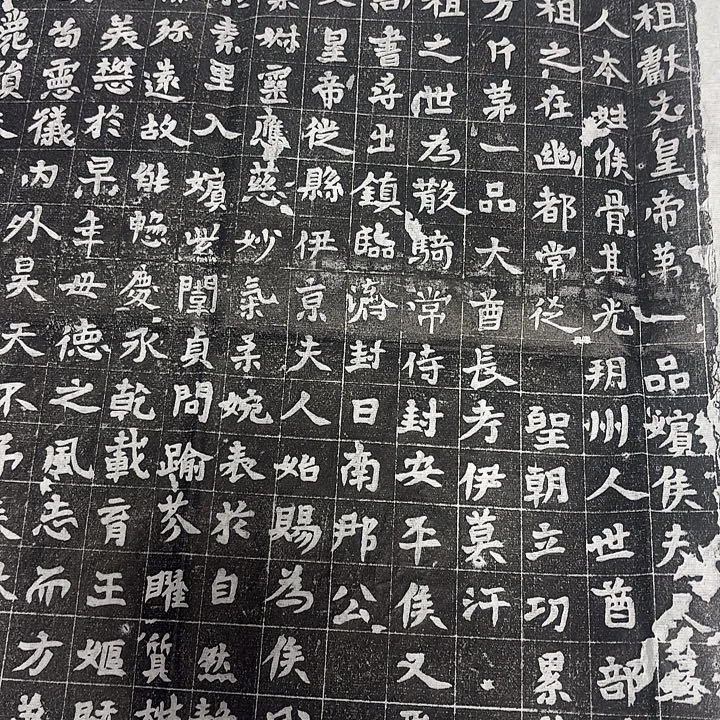 祖獻文皇帝第一品嬪侯夫
人本姓侯骨其光朔州人世酋部
祖之在幽都常從　聖朝立功累
方斤第一品大酋長考伊莫汗
祖之世為散騎常侍封安平侯又
尚書尋出鎮臨濟封日南郡公
皇帝從縣伊京夫人始賜為侯
姊靈應慈妙氣柔婉表於自然
素里入嬪紫闈貞問踰芬曜質
弥遠故能懃慶承乾載育王姬
美懋於早年母德之風志而方
儀内外昊天不弔